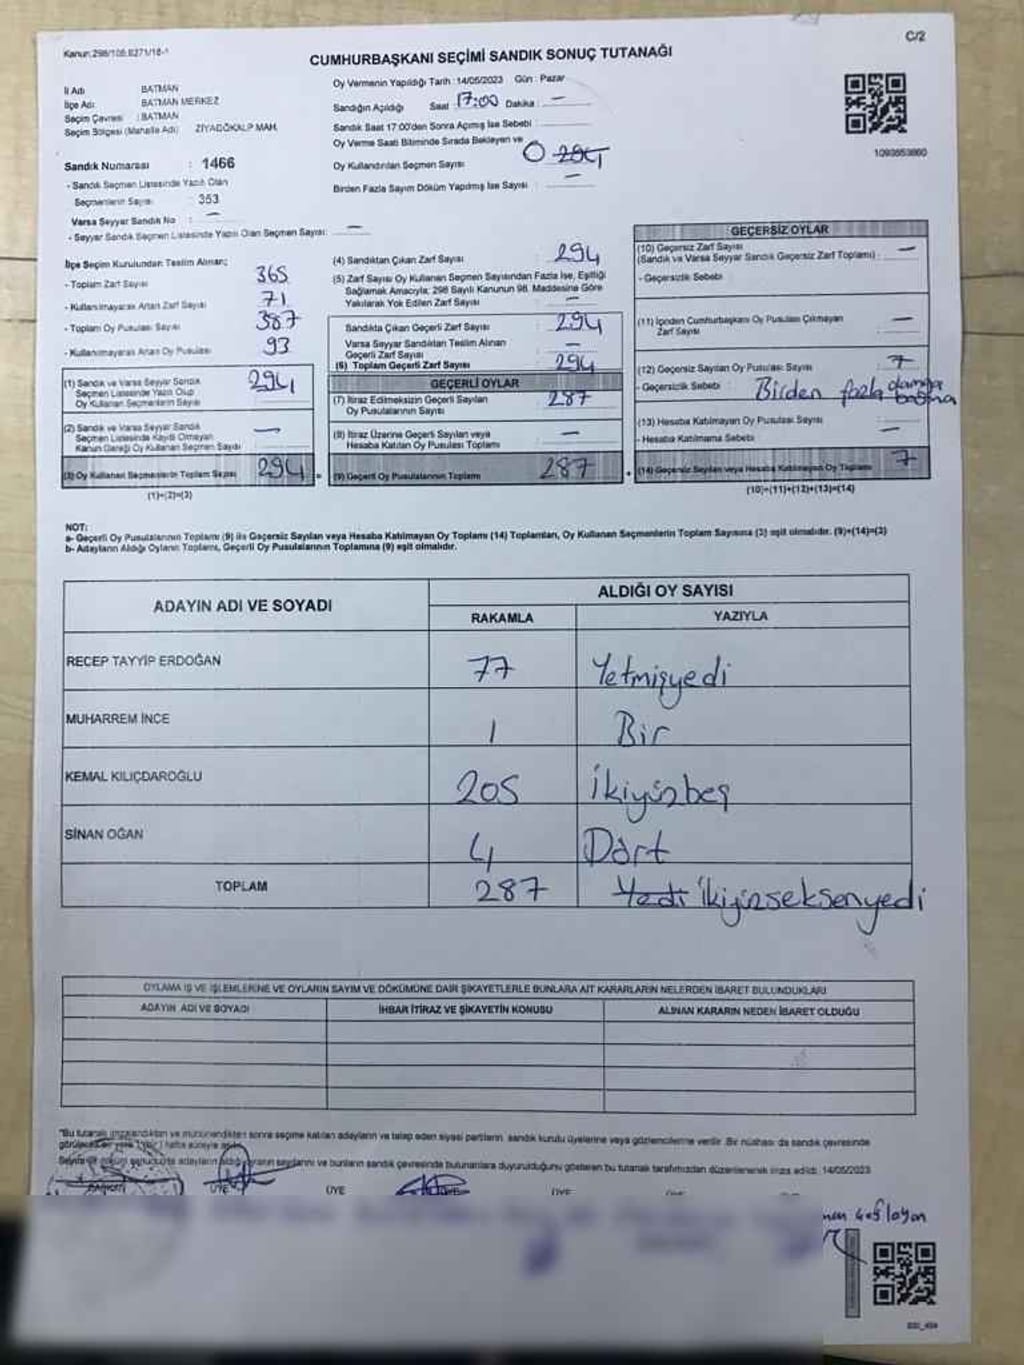 Kanun:298/105.6271/16-1
C/2
CUMHURBAŞKANI SEÇİMİ SANDIK SONUÇ TUTANAĞI
İl Adı BATMAN
İlçe Adı: BATMAN MERKEZ
Seçim Çevresi : BATMAN
Seçim Bölgesi (Mahalle Adı) ZİYAGÖKALP MAH.
Sandık Numarası : 1466
- Sandık Seçmen Listesinde Yazılı Olan
Seçmenlerin Sayısı : 353
Varsa Seyyar Sandık No : —
- Seyyar Sandık Seçmen Listesinde Yazılı Olan Seçmen Sayısı: —
Oy Vermenin Yapıldığı Tarih : 14/05/2023 Gün : Pazar
Sandığın Açıldığı Saat 17:00 Dakika : —
Sandık Saat 17:00'den Sonra Açımış İse Sebebi :
Oy Verme Saati Bitiminde Sırada Bekleyen ve
Oy Kullandırılan Seçmen Sayısı : 0 294
Birden Fazla Sayım Döküm Yapılmış İse Sayısı : —
1093653860
İlçe Seçim Kurulundan Teslim Alınan;
- Toplam Zarf Sayısı 365
- Kullanılmayarak Artan Zarf Sayısı 71
- Toplam Oy Pusulası Sayısı 387
- Kullanılmayarak Artan Oy Pusulası 93
(1) Sandık ve Varsa Seyyar Sandık
Seçmen Listesinde Yazılı Olup
Oy Kullanan Seçmenlerin Sayısı 294
(2) Sandık ve Varsa Seyyar Sandık
Seçmen Listesinde Kaydı Olmayan
Kanun Gereği Oy Kullanan Seçmen Sayısı —
(3) Oy Kullanan Seçmenlerin Toplam Sayısı 294
(1)+(2)=(3)
(4) Sandıktan Çıkan Zarf Sayısı 294
(5) Zarf Sayısı Oy Kullanan Seçmen Sayısından Fazla İse, Eşitliği
Sağlamak Amacıyla; 298 Sayılı Kanunun 98. Maddesine Göre
Yakılarak Yok Edilen Zarf Sayısı —
Sandıkta Çıkan Geçerli Zarf Sayısı 294
Varsa Seyyar Sandıktan Teslim Alınan
Geçerli Zarf Sayısı —
(6) Toplam Geçerli Zarf Sayısı 294
GEÇERLİ OYLAR
(7) İtiraz Edilmeksizin Geçerli Sayılan
Oy Pusulalarının Sayısı 287
(8) İtiraz Üzerine Geçerli Sayılan veya
Hesaba Katılan Oy Pusulası Toplamı —
(9) Geçerli Oy Pusulalarının Toplamı 287
GEÇERSİZ OYLAR
(10) Geçersiz Zarf Sayısı
(Sandık ve Varsa Seyyar Sandık Geçersiz Zarf Toplamı) : —
- Geçersizlik Sebebi :
(11) İçinden Cumhurbaşkanı Oy Pusulası Çıkmayan
Zarf Sayısı —
(12) Geçersiz Sayılan Oy Pusulası Sayısı : 7
- Geçersizlik Sebebi : Birden fazla damga
basma
(13) Hesaba Katılmayan Oy Pusulası Sayısı : —
- Hesaba Katılmama Sebebi
(14) Geçersiz Sayılan veya Hesaba Katılmayan Oy Toplamı 7
(10)+(11)+(12)+(13)=(14)
NOT:
a- Geçerli Oy Pusulalarının Toplamı (9) ile Geçersiz Sayılan veya Hesaba Katılmayan Oy Toplamı (14) Toplamları, Oy Kullanan Seçmenlerin Toplam Sayısına (3) eşit olmalıdır. (9)+(14)=(3)
b- Adayların Aldığı Oyların Toplamı, Geçerli Oy Pusulalarının Toplamına (9) eşit olmalıdır.
ADAYIN ADI VE SOYADI
ALDIĞI OY SAYISI
RAKAMLA YAZIYLA
RECEP TAYYİP ERDOĞAN 77 Yetmişyedi
MUHARREM İNCE 1 Bir
KEMAL KILIÇDAROĞLU 205 İkiyüzbeş
SİNAN OĞAN 4 Dört
TOPLAM 287 Yedi ikiyüzseksenyedi
OYLAMA İŞ VE İŞLEMLERİNE VE OYLARIN SAYIM VE DÖKÜMÜNE DAİR ŞİKAYETLERLE BUNLARA AİT KARARLARIN NELERDEN İBARET BULUNDUKLARI
ADAYIN ADI VE SOYADI İHBAR İTİRAZ VE ŞİKAYETİN KONUSU ALINAN KARARIN NEDEN İBARET OLDUĞU
"Bu tutanak imzalandıktan ve mühürlendikten sonra seçime katılan adayların ve talep eden siyasi partilerin sandık kurulu üyelerine veya gözlemcilerine verilir. Bir nüshası da sandık çevresinde
görülecek bir yere 1 (bir) hafta süreyle asılır.
sayılarını ve bunların sandık çevresinde bulunanlara duyurulduğunu gösteren bu tutanak tarafımızdan düzenlenerek imza edildi. 14/05/2023
BAŞKAN ÜYE ÜYE ÜYE